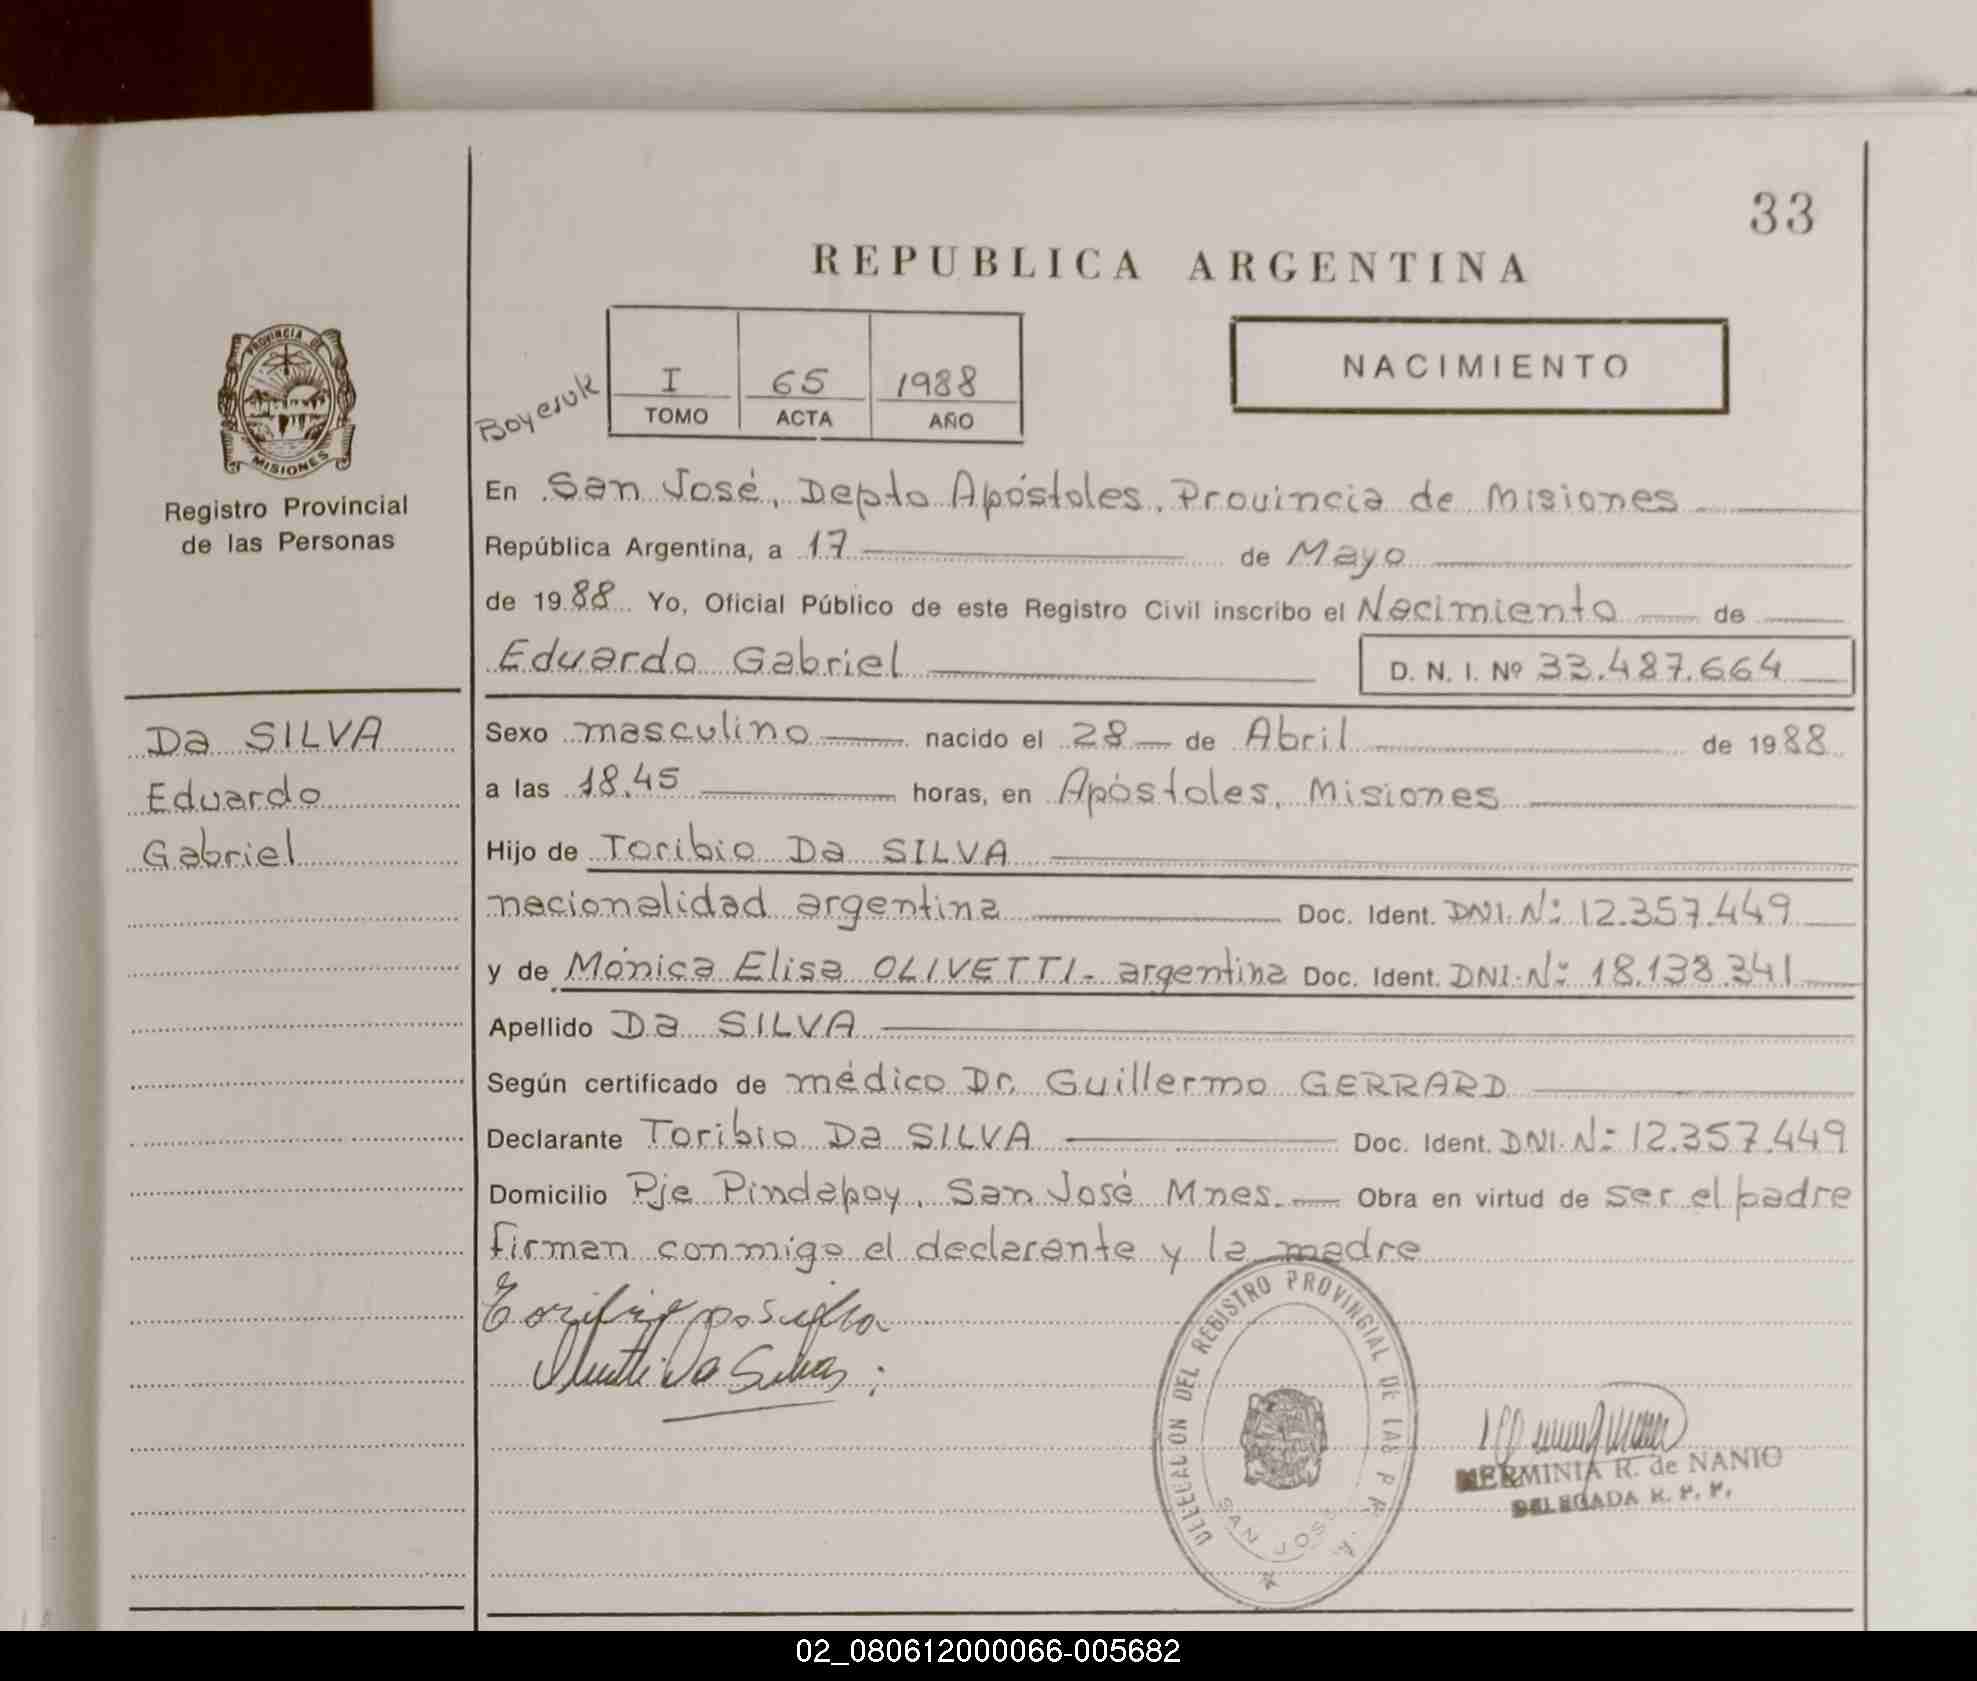 33
REPUBLICA ARGENTINA
PROVINCIA DE
MISIONES
Registro Provincial
de las Personas
Boyesuk
I 65 1988
TOMO ACTA AÑO
NACIMIENTO
En San José, Depto Apóstoles, Provincia de Misiones
República Argentina, a 17 de Mayo
de 1988 Yo, Oficial Público de este Registro Civil inscribo el Nacimiento de
Eduardo Gabriel D. N. I. Nº 33.487.664
Da SILVA
Eduardo
Gabriel
Sexo masculino nacido el 28 de Abril de 1988
a las 18.45 horas, en Apóstoles, Misiones
Hijo de Toribio Da SILVA
nacionalidad argentina Doc. Ident. DNI. Nº: 12.357.449
y de Mónica Elisa OLIVETTI- argentina Doc. Ident. DNI. Nº: 18.138.341
Apellido Da SILVA
Según certificado de médico Dr. Guillermo GERRARD
Declarante Toribio Da SILVA Doc. Ident. DNI. Nº: 12.357.449
Domicilio Pje Pindapoy, San José Mnes. Obra en virtud de ser el padre
firman conmigo el declarante y la madre
DELEGACION DEL REGISTRO PROVINCIAL DE LAS P
SAN JOSE
HERMINIA R. de NANIO
DELEGADA R. P. P.
02_080612000066-005682